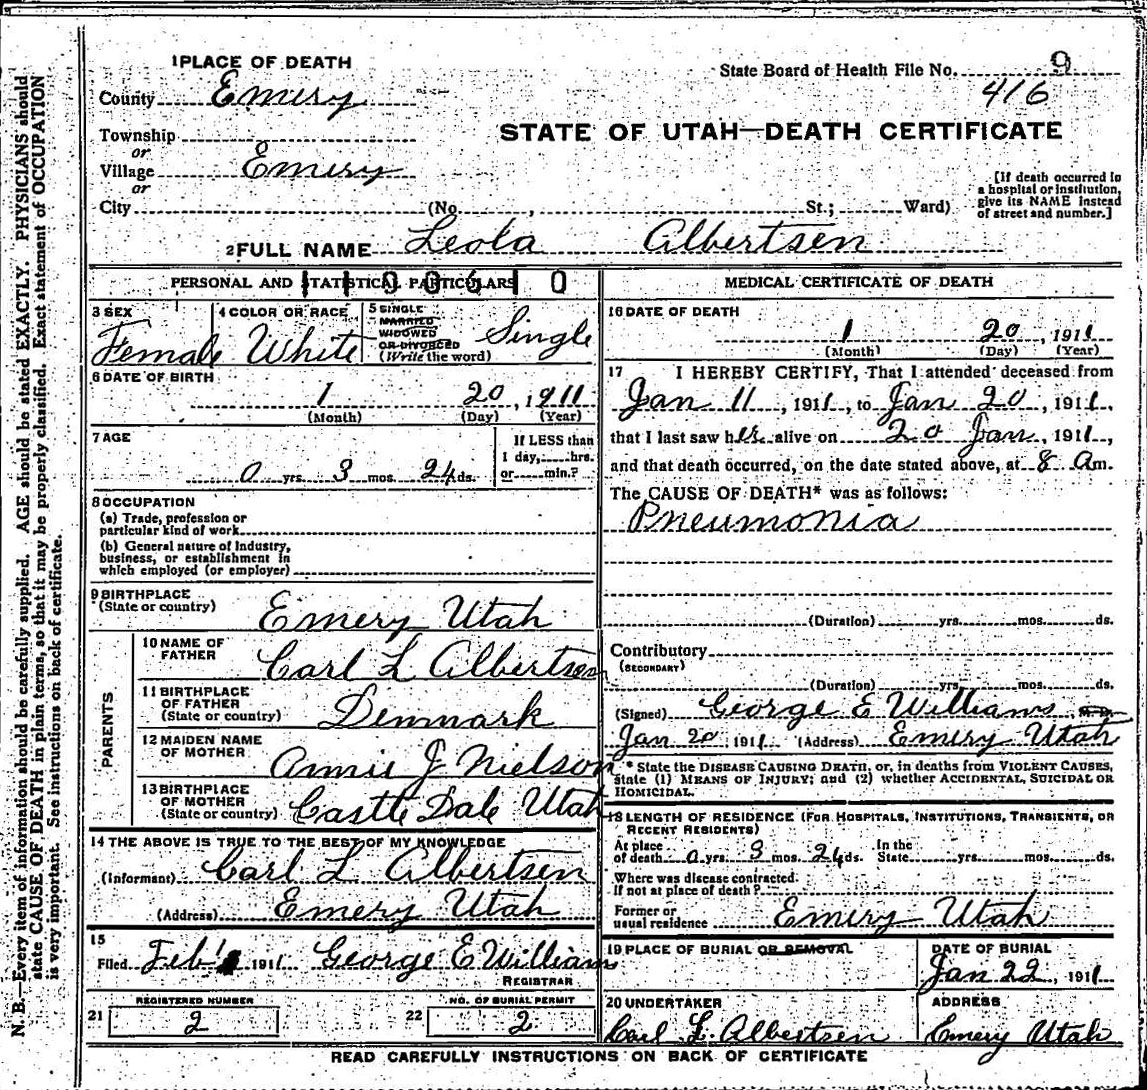 1 PLACE OF DEATH
State Board of Health File No. 9
County Emery
416
STATE OF UTAH—DEATH CERTIFICATE
Township
or
Village Emery
or
[If death occurred in
a hospital or institution,
give its NAME instead
of street and number.]
City (No. , St.; Ward)
2 FULL NAME Leola Albertsen
PERSONAL AND STATISTICAL PARTICULARS
MEDICAL CERTIFICATE OF DEATH
3 SEX Female
4 COLOR OR RACE White
5 SINGLE
MARRIED
WIDOWED
OR DIVORCED
(Write the word) Single
6 DATE OF BIRTH
1 20, 1911
(Month) (Day) (Year)
7 AGE
0 yrs. 3 mos. 24 ds.
If LESS than
1 day, hrs.
or min.?
8 OCCUPATION
(a) Trade, profession or
particular kind of work
(b) General nature of Industry,
business, or establishment in
which employed (or employer)
9 BIRTHPLACE
(State or country) Emery Utah
PARENTS
10 NAME OF
FATHER Carl L Albertsen
11 BIRTHPLACE
OF FATHER
(State or country) Denmark
12 MAIDEN NAME
OF MOTHER Annie J Nielson
13 BIRTHPLACE
OF MOTHER
(State or country) Castle Dale Utah
14 THE ABOVE IS TRUE TO THE BEST OF MY KNOWLEDGE
(Informant) Carl L Albertsen
(Address) Emery Utah
15
Filed Feb 1911 George E Williams
REGISTRAR
REGISTERED NUMBER
21 2
NO. OF BURIAL PERMIT
22 2
16 DATE OF DEATH
1 20, 1911
(Month) (Day) (Year)
17 I HEREBY CERTIFY, That I attended deceased from
Jan 11, 1911, to Jan 20, 1911,
that I last saw her alive on 20 Jan, 1911,
and that death occurred, on the date stated above, at 8 am.
The CAUSE OF DEATH* was as follows:
Pneumonia
(Duration) yrs. mos. ds.
Contributory
(SECONDARY)
(Duration) yrs. mos. ds.
(Signed) George E Williams M.D.
Jan 20 1911 (Address) Emery Utah
* State the DISEASE CAUSING DEATH, or, in deaths from VIOLENT CAUSES,
state (1) MEANS OF INJURY; and (2) whether ACCIDENTAL, SUICIDAL OR
HOMICIDAL.
18 LENGTH OF RESIDENCE (FOR HOSPITALS, INSTITUTIONS, TRANSIENTS, OR
RECENT RESIDENTS)
At place
of death 0 yrs. 3 mos. 24 ds. In the
State yrs. mos. ds.
Where was disease contracted
If not at place of death?
Former or
usual residence Emery Utah
19 PLACE OF BURIAL OR REMOVAL
DATE OF BURIAL
Jan 22, 1911
20 UNDERTAKER
Carl L. Albertsen
ADDRESS
Emery Utah
READ CAREFULLY INSTRUCTIONS ON BACK OF CERTIFICATE
N. B.—Every item of information should be carefully supplied. AGE should be stated EXACTLY. PHYSICIANS should
state CAUSE OF DEATH in plain terms, so that it may be properly classified. Exact statement of OCCUPATION
is very important. See instructions on back of certificate.